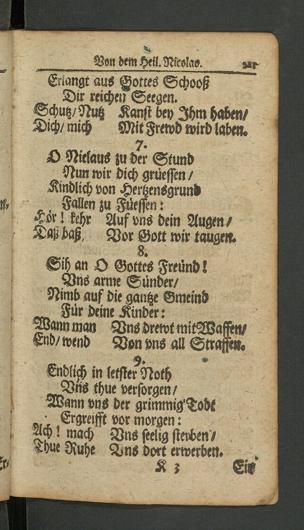 Von dem Heil. Nicolas. 221
Erlangt aus Gottes Schooß
Dir reichen Seegen.
Schutz/ Nutz Kanst bey Ihm haben/
Dich/ mich Mit Frewd wird laben.
7.
O Niclaus zu der Stund
Nun wir dich grüessen/
Kindlich von Hertzensgrund
Fallen zu Füessen:
Hör! kehr Auf vns dein Augen/
Daß baß Vor Gott wir taugen.
8.
Sih an O Gottes Freünd!
Vns arme Sünder/
Nimb auf die gantze Gmeind
Für deine Kinder:
Wann man Vns drewt mit Waffen/
End/ wend Von vns all Straffen.
9.
Endlich in letster Noth
Vns thue versorgen/
Wann vns der grimmig Todt
Ergreifft vor morgen:
Ach! mach Vns seelig sterben/
Thue Ruhe Vns dort erwerben.
K 3 Ein